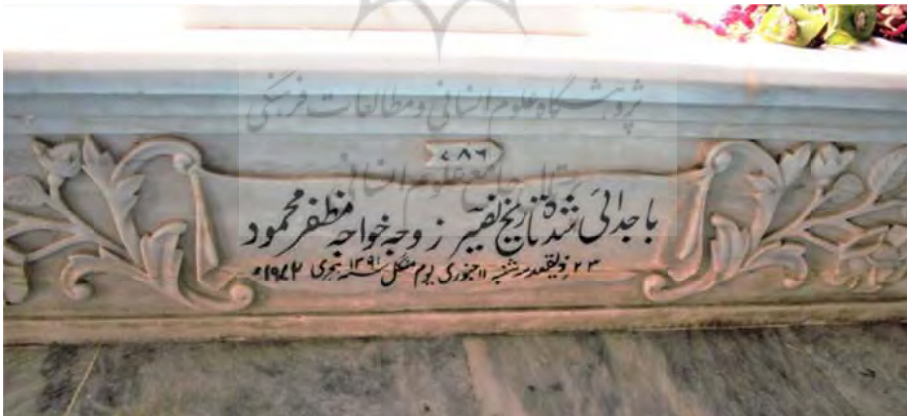 پژوهشگاه علوم انسانی و مطالعات فرهنگی
۷۸۶
پرتال جامع علوم انسانی
با جدائی شد تاریخ نفیر زوجہ خواجہ مظفر محمود
۲۳ ذیقعد سہ شنبہ ۱۱ جنوری یوم منگل ۱۳۹۱ سنہ ہجری ۱۹۷۲ء